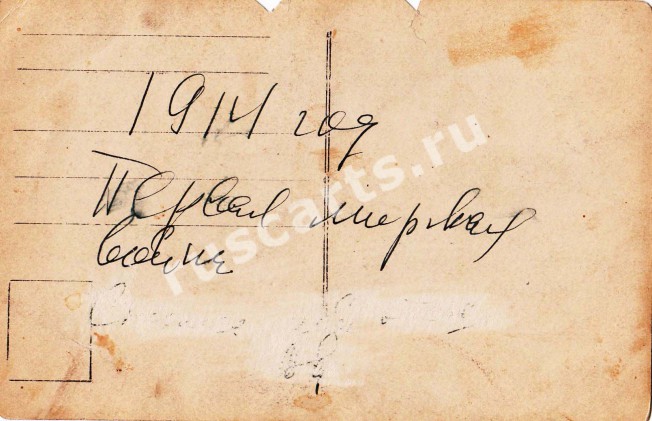 1914 год
Первая мировая
война
ruscarts.ru